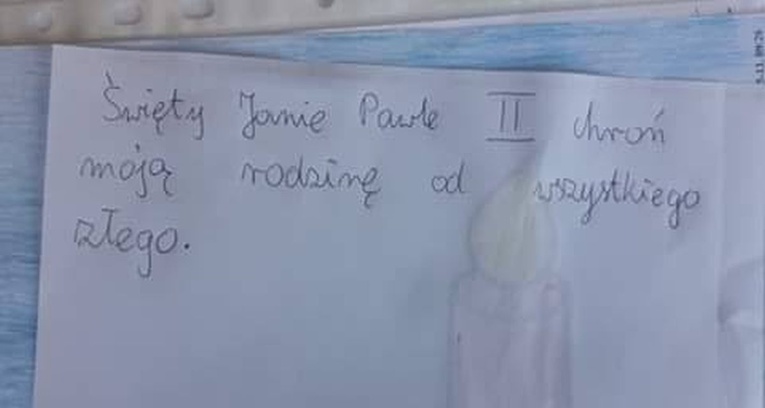 Święty Janie Pawle II chroń
moją rodzinę od wszystkiego
złego.